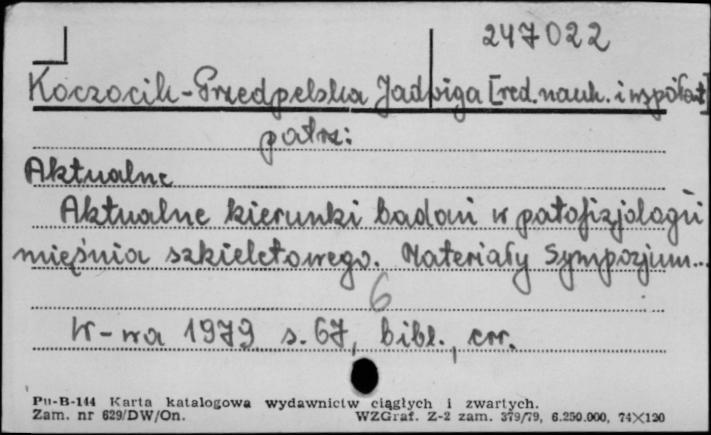 247022
Koczocik-Przedpelska Jadwiga [red. nauk. i współaut]
patrz:
Aktualne
Aktualne kierunki badań w patofizjologii
mięśnia szkieletowego. Materiały Sympozjum...
6
W-wa 1979 s. 67, bibl., err.
Pu-B-144 Karta katalogowa wydawnictw ciągłych i zwartych.
Zam. nr 629/DW/On. WZGraf. Z-2 zam. 379/79, 6.250.000, 74×120